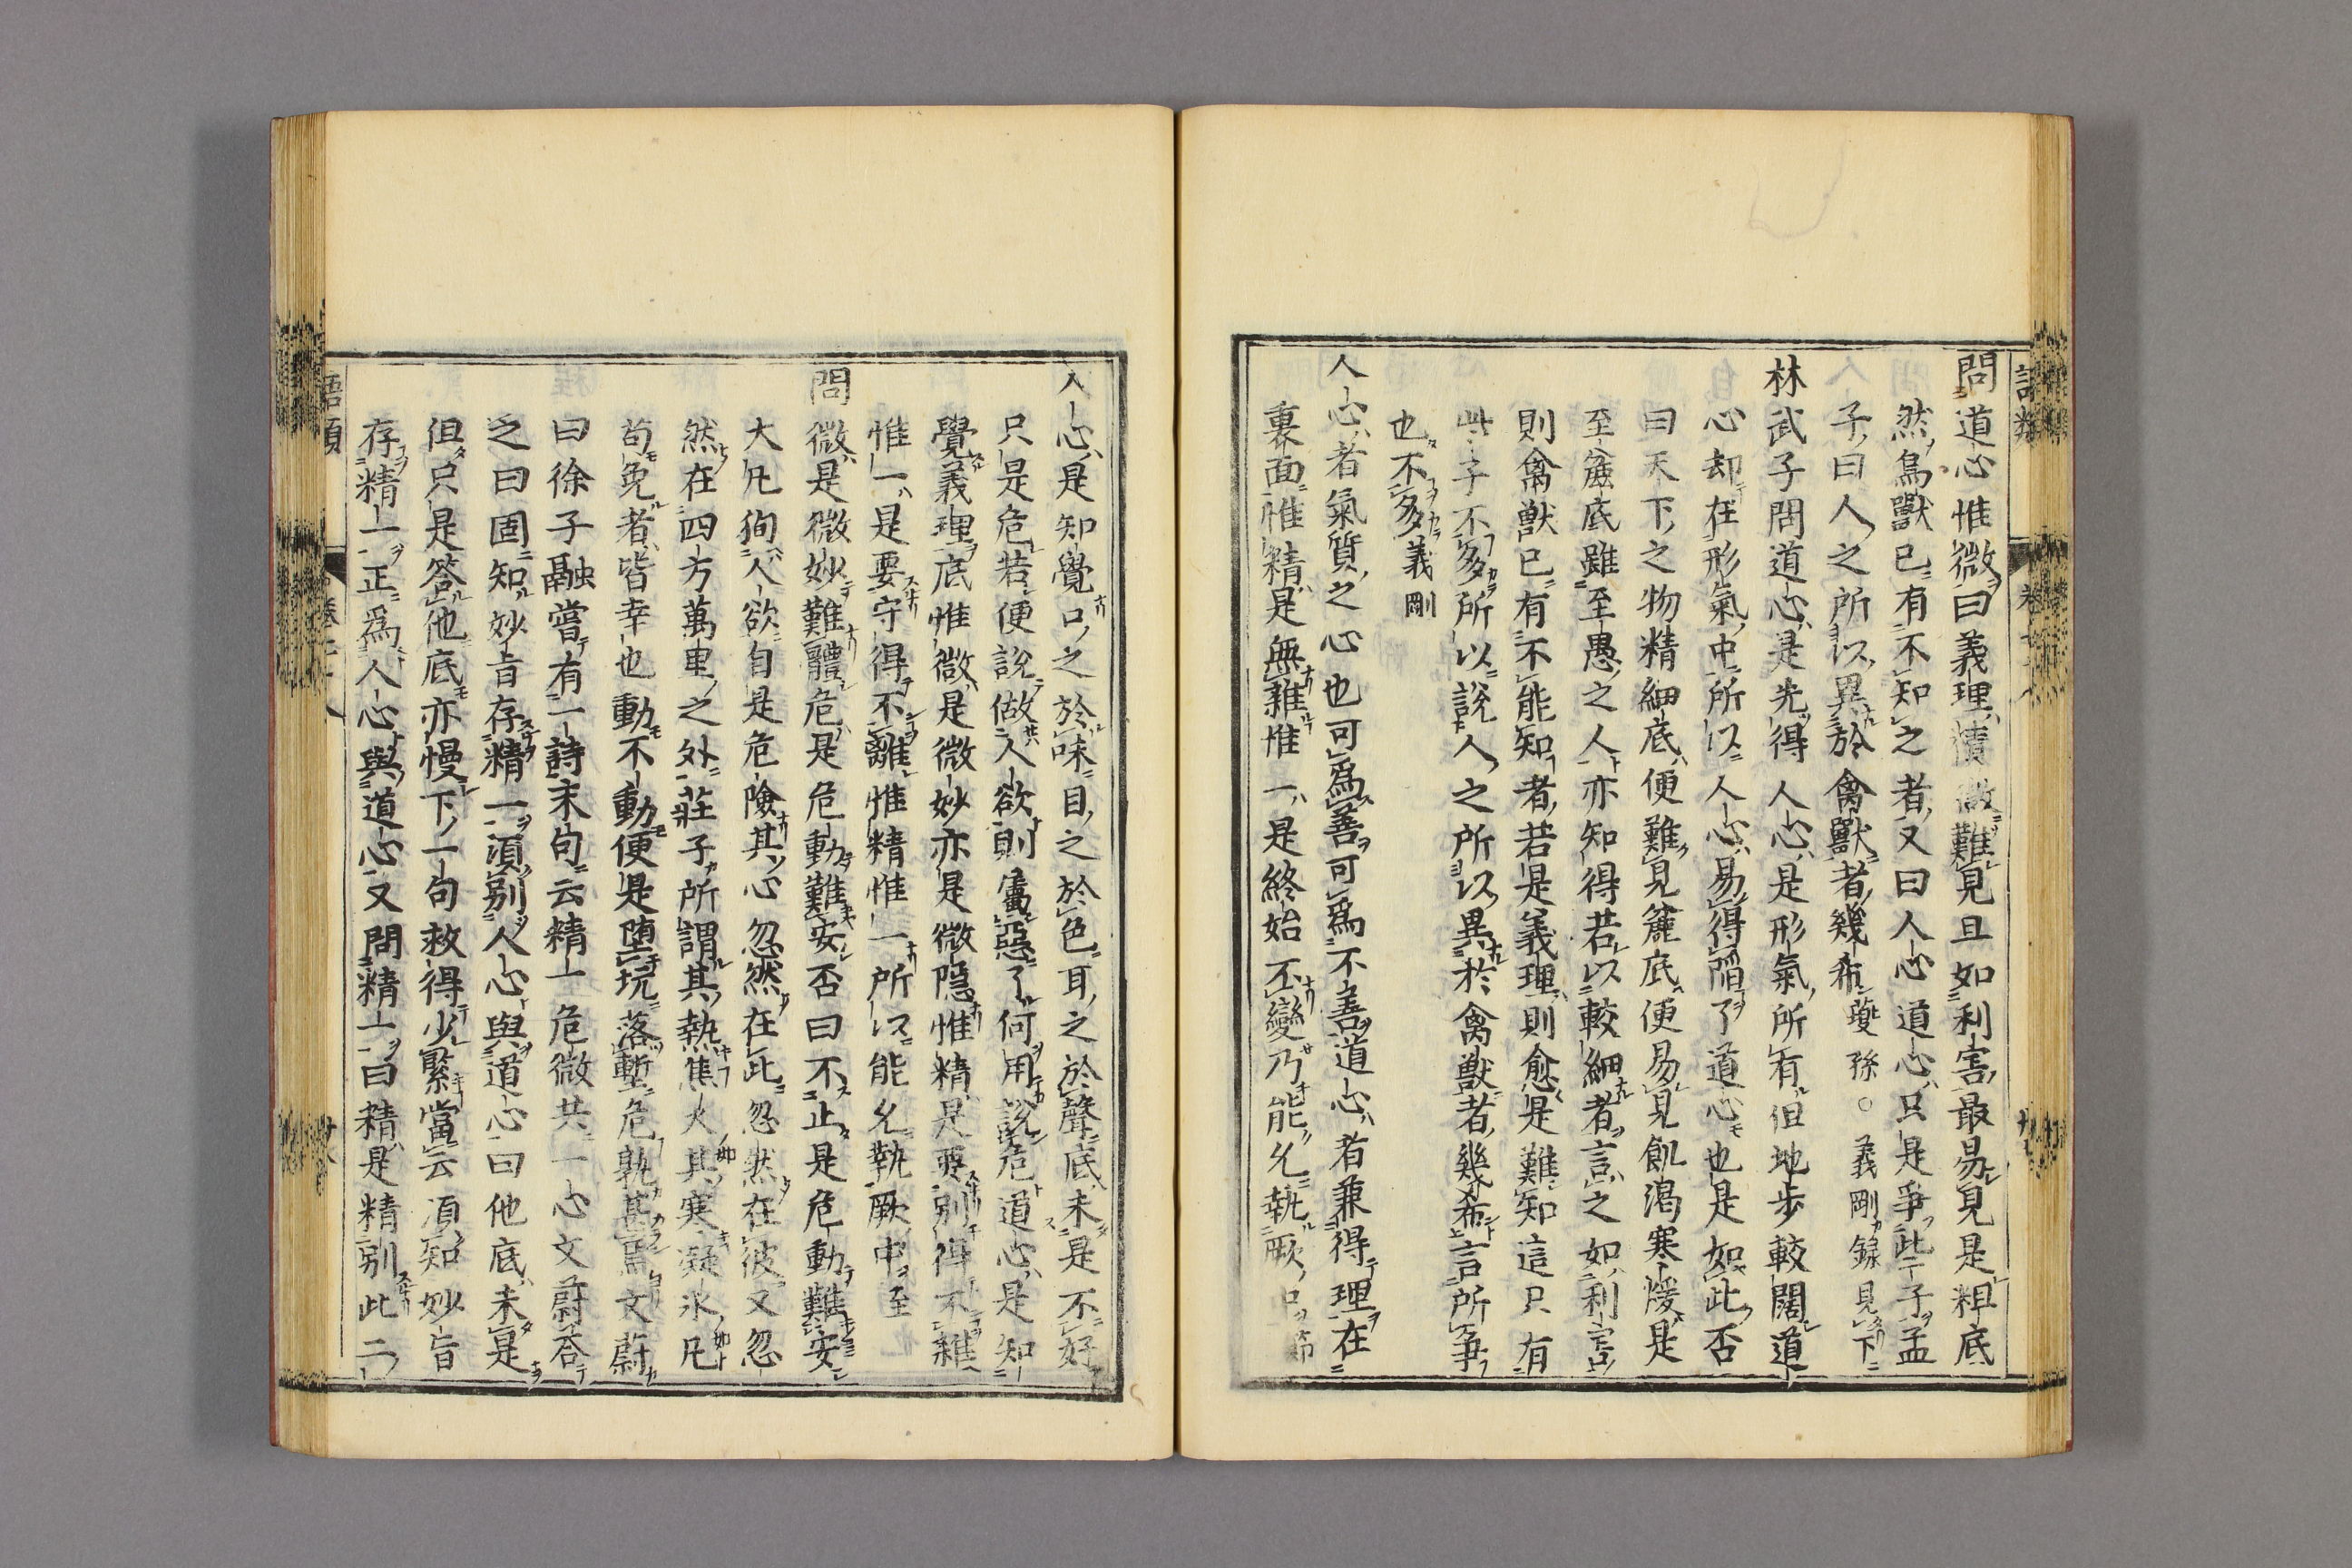 問道心惟微曰義理精微難見且如利害最易見是粗底
然鳥獸已有不知之者又曰人心道心只是爭此二子孟
子曰人之所以異於禽獸者幾希 夔孫〇義剛錄見下
林武子問道心是先得人心是形氣所有但地步較闊道
心却在形氣中所以人心易得陷了道心也是如此否
曰天下之物精細底便難見麄底便易見飢渴寒煖是
至麄底雖至愚之人亦知得若以較細者言之如利害
則禽獸已有不能知者若是義理則愈是難知這只有
此子不多所以說人之所以異於禽獸者幾希言所爭
也不多 義剛
人心者氣質之心也可爲善可爲不善道心者兼得理在
裏面惟精是無雜惟一是終始不變乃能允執厥中 節
人心是知覺口之於味目之於色耳之於聲底未是不好
只是危若便說做人欲則屬惡了何用說危道心是知
覺義理底惟微是微妙亦是微隱惟精是要別得不雜
惟一是要守得不離惟精惟一所以能允執厥中 至
問微是微妙難體危是危動難安否曰不止是危動難安
大凡狥人欲自是危險其心忽然在此忽然在彼又忽
然在四方萬里之外莊子所謂其熱焦火其寒凝氷凡
苟免者皆幸也動不動便是墮坑落塹危孰甚焉文蔚
曰徐子融嘗有一詩末句云精一危微共一心文蔚答
之曰固知妙旨存精一須別人心與道心曰他底未是
但只是答他底亦慢下一句救得少緊當云須知妙旨
存精一正爲人心與道心又問精一曰精是精別此二